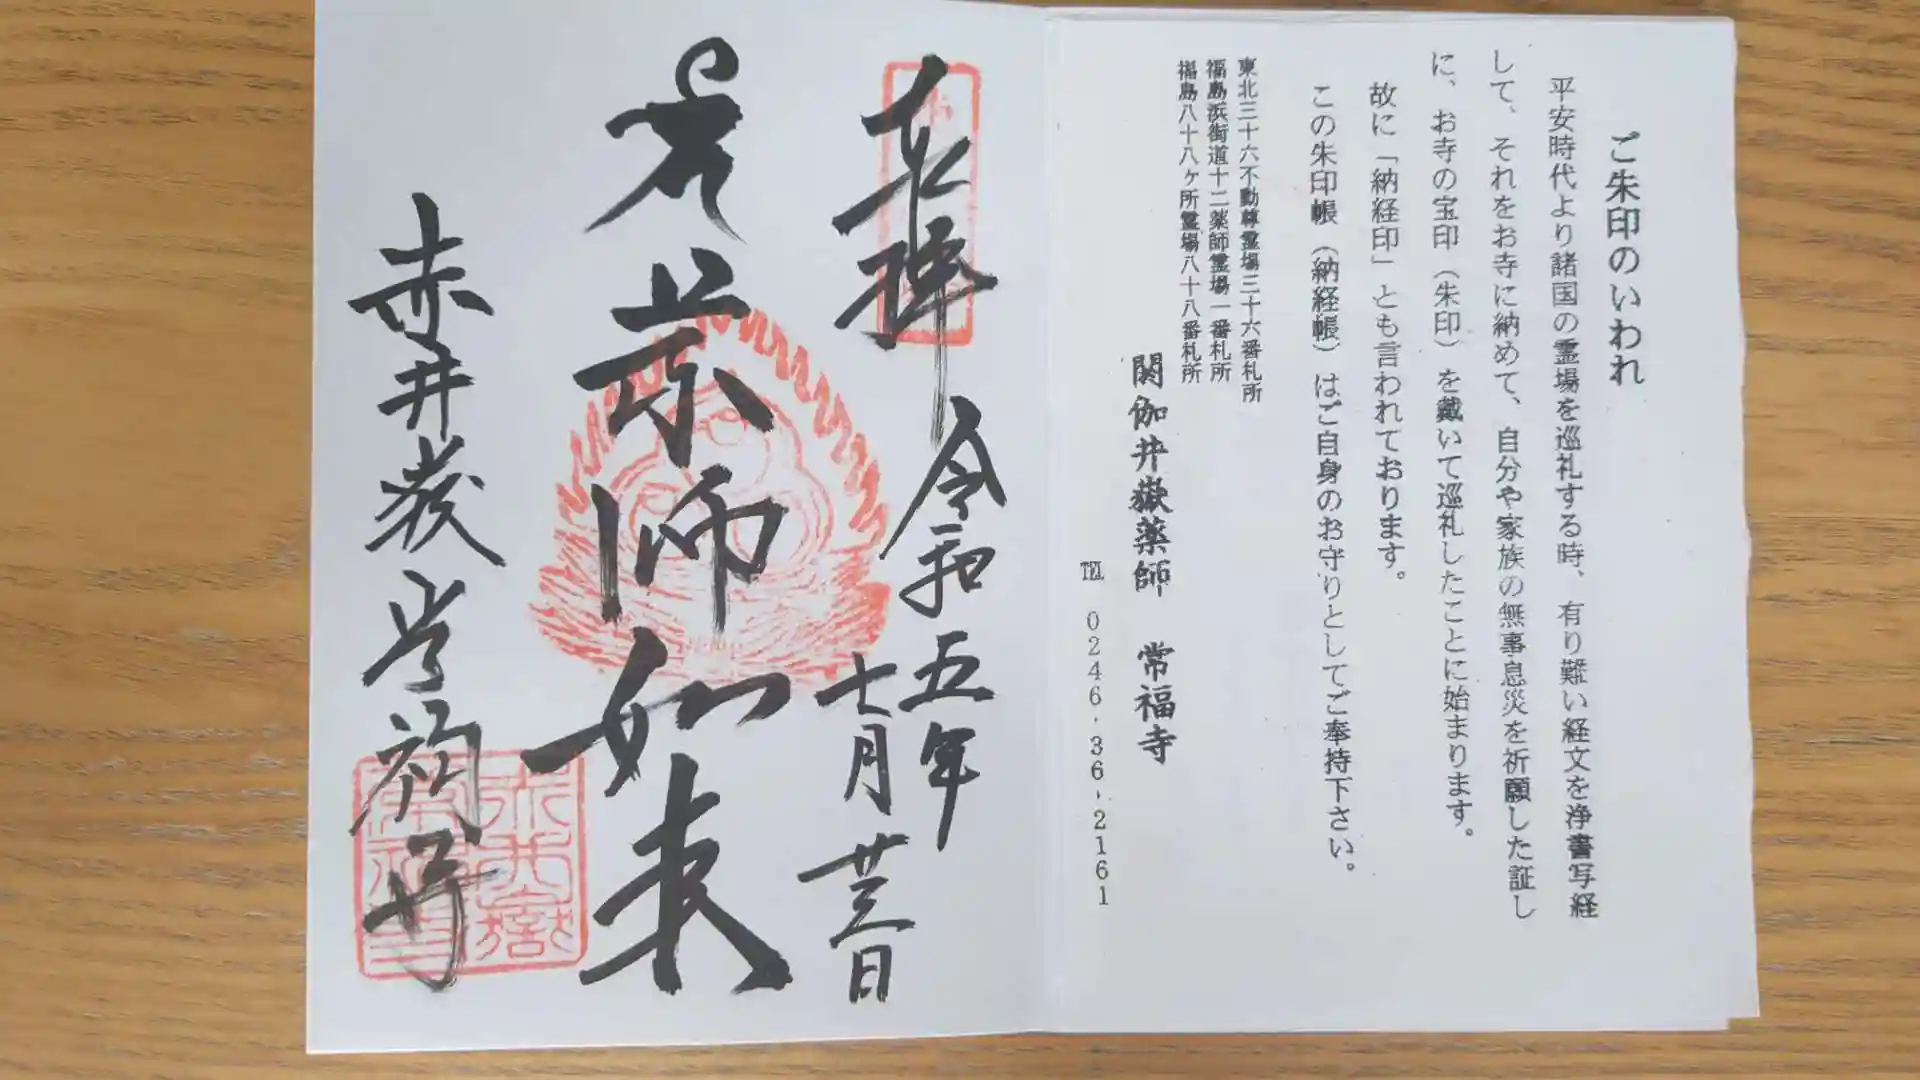 ご朱印のいわれ
平安時代より諸国の霊場を巡礼する時、有り難い経文を浄書写経
して、それをお寺に納めて、自分や家族の無事息災を祈願した証し
に、お寺の宝印（朱印）を戴いて巡礼したことに始まります。
故に「納経印」とも言われております。
この朱印帳（納経帳）はご自身のお守りとしてご奉持下さい。
東北三十六不動尊霊場三十六番札所
福島浜街道十二薬師霊場一番札所
福島八十八ヶ所霊場八十八番札所
閼伽井嶽薬師　常福寺
℡ 0246-36-2161
奉拝
令和五年
七月廿三日
薬師如来
赤井嶽常福寺